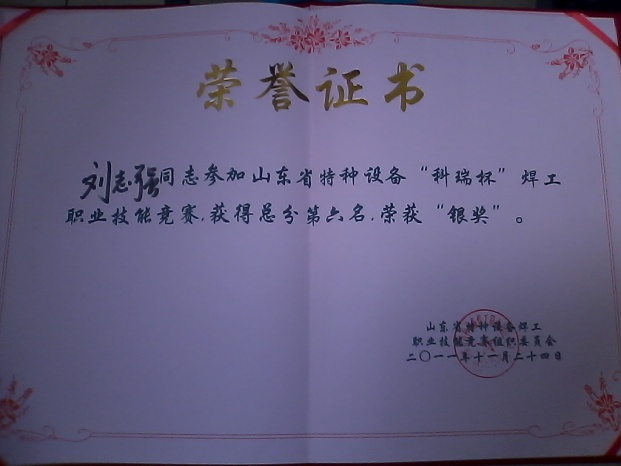 荣誉证书
刘志强同志参加山东省特种设备“科瑞杯”焊工
职业技能竞赛,获得总分第六名,荣获“银奖”。
山东省特种设备焊工
职业技能竞赛组织委员会
二〇一一年十一月二十四日